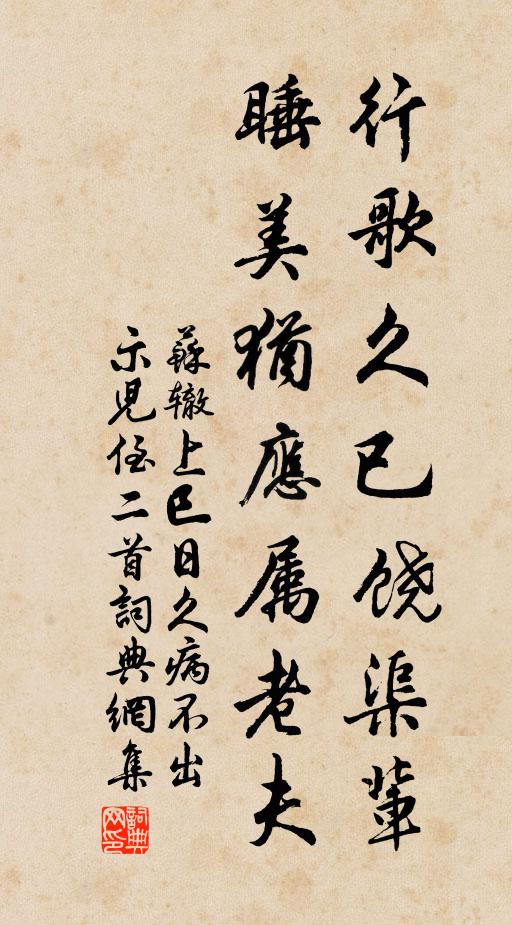 行歌久已饶渠辈
睡美猶應属老夫
蘇辙上巳日久病不出
示児侄二首詞典網集
詞典
网印